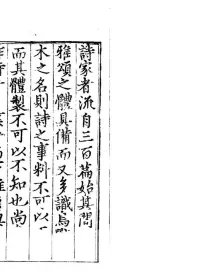 詩家者流自三百篇始其間
雅頌之體具備而又多識鳥
木之名則詩之事料不可以
而其體製不可以不知也尚